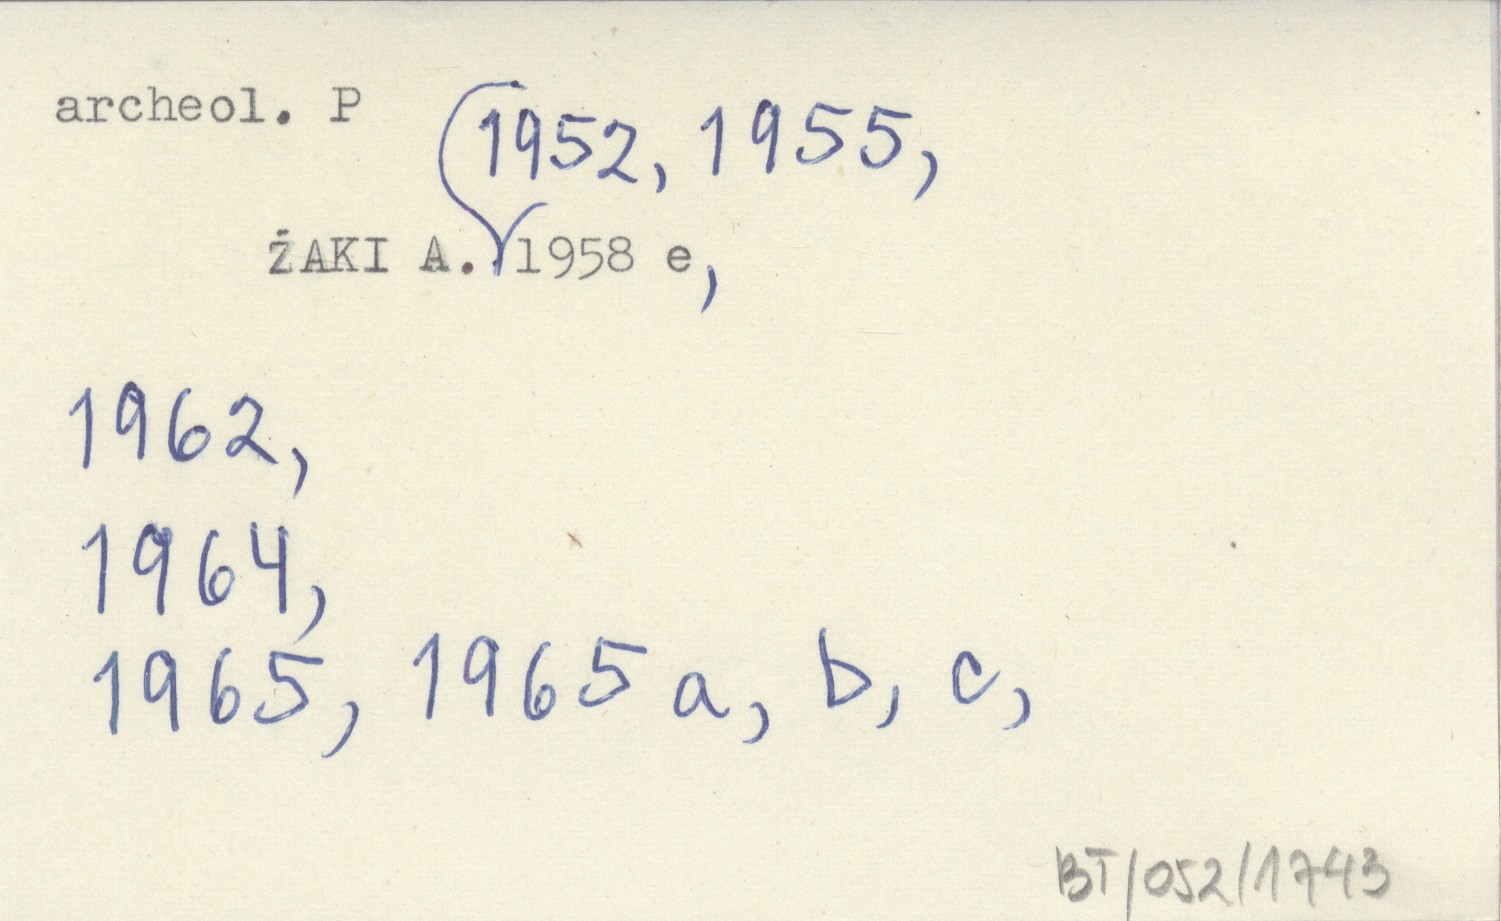 archeol. P
1952, 1955,
ŻAKI A. 1958 e,
1962,
1964,
1965, 1965 a, b, c,
BT/052/1743